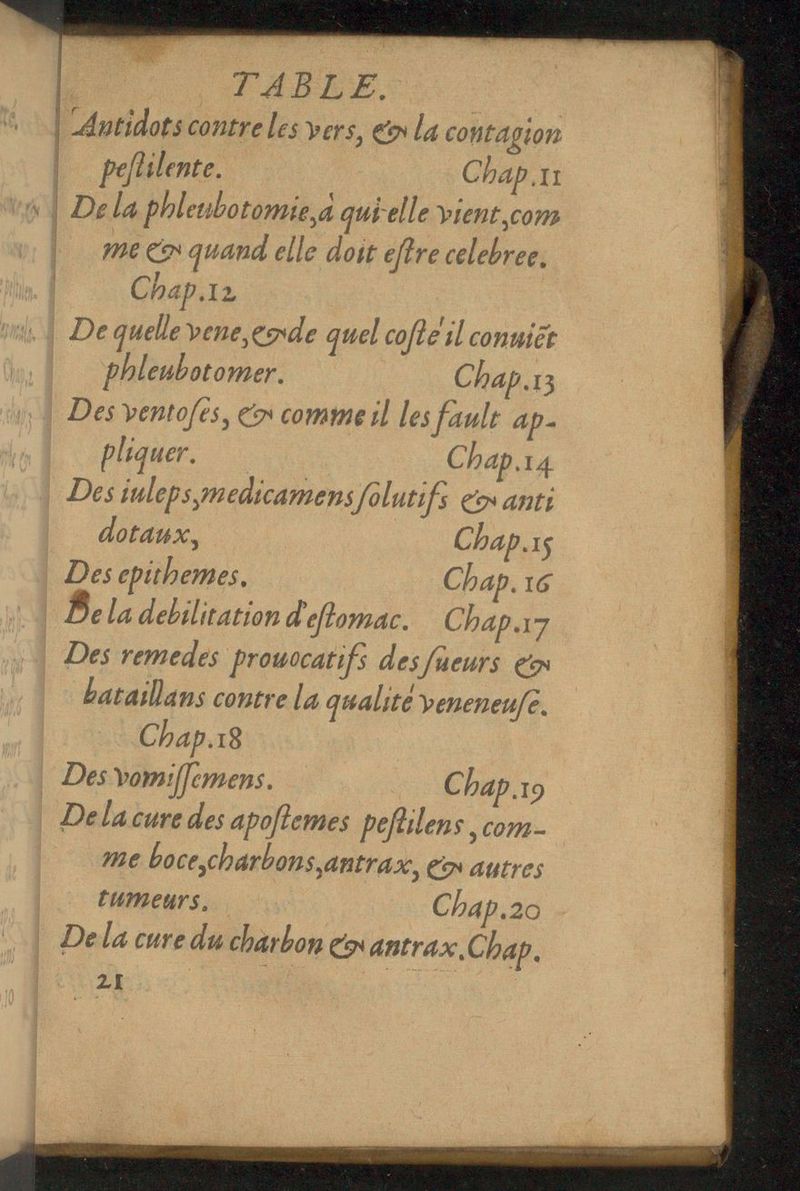 TABLE.
Antidots contre les vers, & la contagion
peſtilente. Chap.11
De la phleubotomie,a qui elle vient,com
me & quand elle doit eſtre celebree.
Chap.12
De quelle vene,& de quel coſté il conuiẽt
phleubotomer. Chap.13
Des ventoſes, & comme il les fault ap-
pliquer. Chap.14
Des iuleps,medicamens ſolutifs & anti
dotaux, Chap.15
Des epithemes. Chap.16
De la debilitation d'eſtomac. Chap.17
Des remedes prouocatifs des ſueurs &
bataillans contre la qualité veneneuſe.
Chap.18
Des vomiſſemens. Chap.19
De la cure des apoſtemes peſtilens,com-
me boce,charbons,antrax, & autres
tumeurs. Chap.20
De la cure du charbon & antrax.Chap.
21